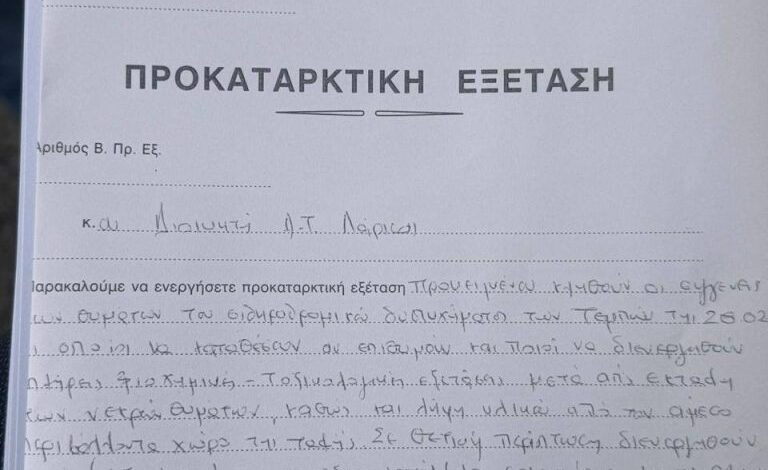 ΠΡΟΚΑΤΑΡΚΤΙΚΗ ΕΞΕΤΑΣΗ
Αριθμός Β. Πρ. Εξ.
κ. Διοικητή Α.Τ. Λάρισας
Παρακαλούμε να ενεργήσετε προκαταρκτική εξέταση προκειμένου κληθούν οι συγγενείς
των θυμάτων του σιδηροδρομικού δυστυχήματος των Τεμπών της
οποίοι να καταθέσουν αν επιθυμούν και ποιοί να διενεργηθούν
πλήρεις βιοχημικές - τοξικολογικές εξετάσεις μετά από εκταφή
των νεκρών θυμάτων, καθώς και λήψη υλικού από τον άμεσο
περιβάλλοντα χώρο της ταφής. Σε θετική περίπτωση διενεργηθούν